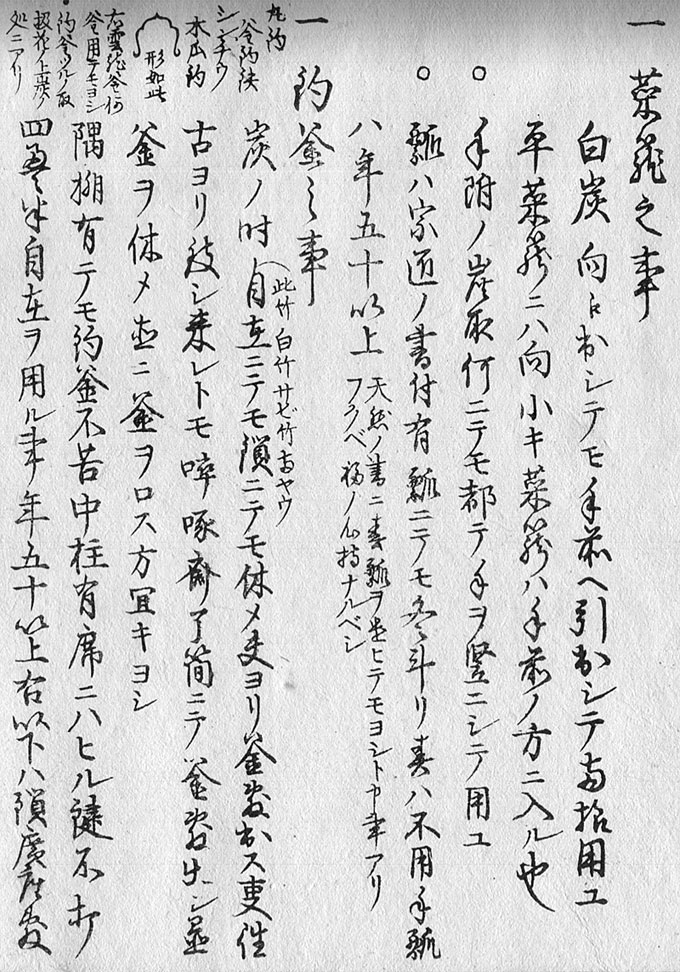 一 菜籠之事
白炭 向ヘ出シテモ手前ヘ引出シテモ 用ユ
平菜籠ニハ向 小キ菜籠ハ手前ノ方ニ入ル也
○ 手附ノ炭取何ニテモ都テ手ヲ竪ニシテ用ユ
○ 瓢ハ宗 ノ書付有 瓢ニテモ冬斗リ春ハ不用手瓢
ハ年五十以上 天然ノ書ニ春瓢ヲ ヒテモヨシト申事アリ
フクベ 福ノ心持ナルベシ
一 釣釜之事
炭ノ時 自在ニテモ鎖ニテモ休メ ヨリ釜 出ス事往
此竹 白竹サビ竹 ヤウ
古ヨリ致シ来レトモ啐啄斎了簡ニテ釜 出シ
釜ヲ休メ 直ニ釜ヲロス方宜キヨシ
隅棚有テモ釣釜不苦中柱有席ニハヒル鍵不打
四畳半自在ヲ用ル事年五十以上右以下ハ鎖廣座敷
丸釣
釜釣鉄
シンチウ
木瓜釣
形如此
右雲龍釜何
釜用テモヨシ
釣釜ツルノ取
扱花ノ上座ノ
処ニアリ